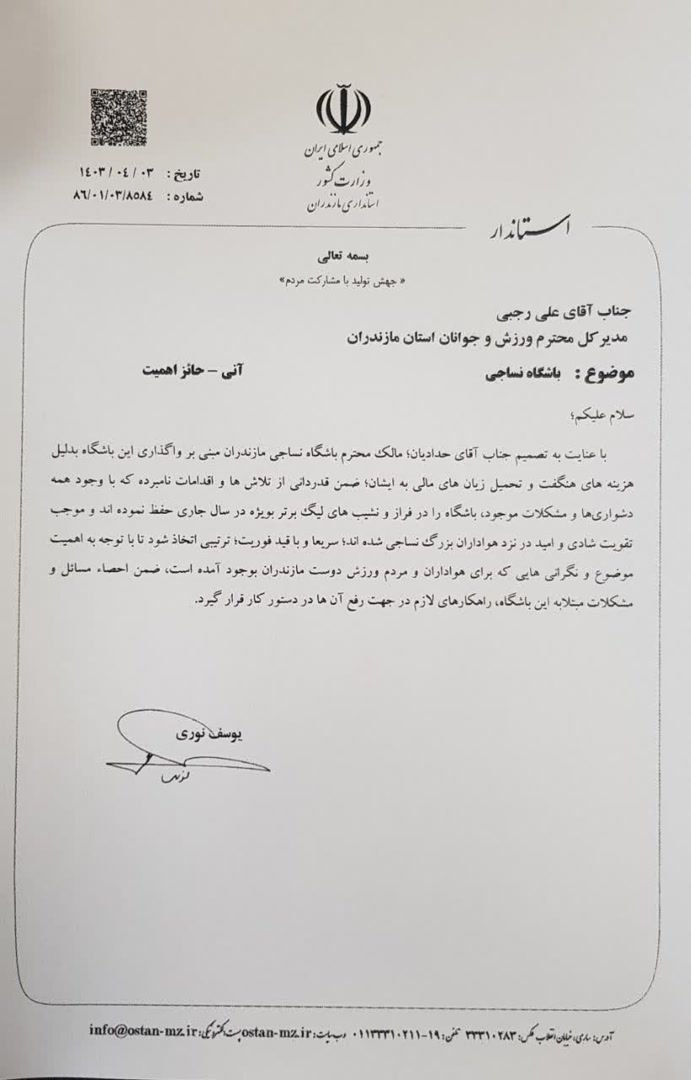 جمهوری اسلامی ایران
وزارت کشور
استانداری مازندران
تاریخ : ۱٤۰۳ / ۰٤ / ۰۳
شماره : ۸٦/۰۱/۰۳/۸٥۸٤
استاندار
بسمه تعالی
« جهش تولید با مشارکت مردم»
جناب آقای علی رجبی
مدیر کل محترم ورزش و جوانان استان مازندران
موضوع : باشگاه نساجی آنی – حائز اهمیت
سلام علیکم؛
با عنایت به تصمیم جناب آقای حدادیان؛ مالک محترم باشگاه نساجی مازندران مبنی بر واگذاری این باشگاه بدلیل
هزینه های هنگفت و تحمیل زیان های مالی به ایشان؛ ضمن قدردانی از تلاش ها و اقدامات نامبرده که با وجود همه
دشواری‌ها و مشکلات موجود، باشگاه را در فراز و نشیب های لیگ برتر بویژه در سال جاری حفظ نموده اند و موجب
تقویت شادی و امید در نزد هواداران بزرگ نساجی شده اند؛ سریعا و با قید فوریت؛ ترتیبی اتخاذ شود تا با توجه به اهمیت
موضوع و نگرانی هایی که برای هواداران و مردم ورزش دوست مازندران بوجود آمده است، ضمن احصاء مسائل و
مشکلات مبتلابه این باشگاه، راهکارهای لازم در جهت رفع آن ها در دستور کار قرار گیرد.
یوسف نوری
آدرس: ساری، خیابان انقلاب فکس: ۳۳۳۱۰۲۸۳ تلفن: ۱۹-۰۱۱۳۳۳۱۰۲۱۱ وب سایت: ostan-mz.ir پست الکترونیکی: info@ostan-mz.ir